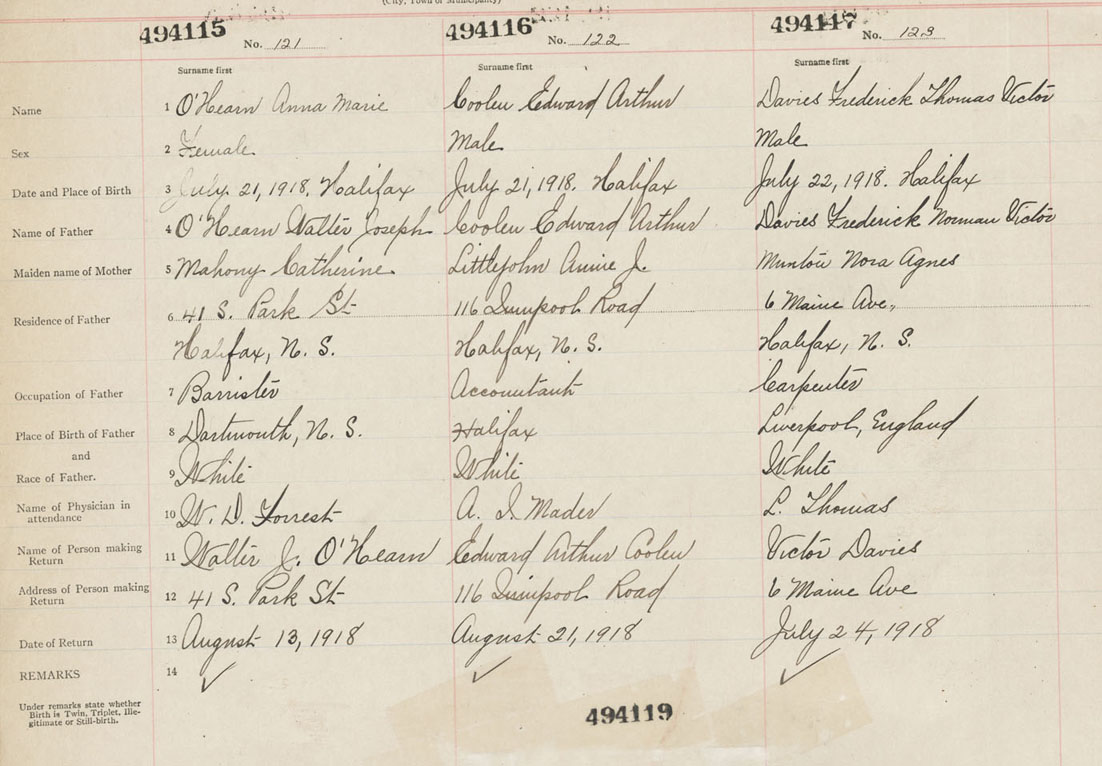 (City, Town or Municipality)
494115 No. 121 494116 No. 122 494117 No. 123
Surname first Surname first Surname first
Name 1 O'Hearn Anna Marie Coolen Edward Arthur Davies Frederick Thomas Victor
Sex 2 Female Male Male
Date and Place of Birth 3 July 21, 1918, Halifax July 21, 1918. Halifax July 22, 1918. Halifax
Name of Father 4 O'Hearn Walter Joseph Coolen Edward Arthur Davies Frederick Norman Victor
Maiden name of Mother 5 Mahony Catherine Littlejohn Annie J. Nora Agnes
Residence of Father 6 41 S. Park St 116 Road 6 Maine Ave.,
Halifax, N. S. Halifax, N. S. Halifax, N. S.
Occupation of Father 7 Barrister Accountant Carpenter
Place of Birth of Father 8 Dartmouth, N. S. Halifax Liverpool, England
and
Race of Father. 9 White White White
Name of Physician in attendance 10 W. D. Forrest A. I. Mader L. Thomas
Name of Person making Return 11 Walter J. O'Hearn Edward Arthur Coolen Victor Davies
Address of Person making Return 12 41 S. Park St 116 Road 6 Maine Ave
Date of Return 13 August 13, 1918 August 21, 1918 July 24, 1918
REMARKS 14
Under remarks state whether
Birth is Twin, Triplet, Ille-
gitimate or Still-birth.
494119